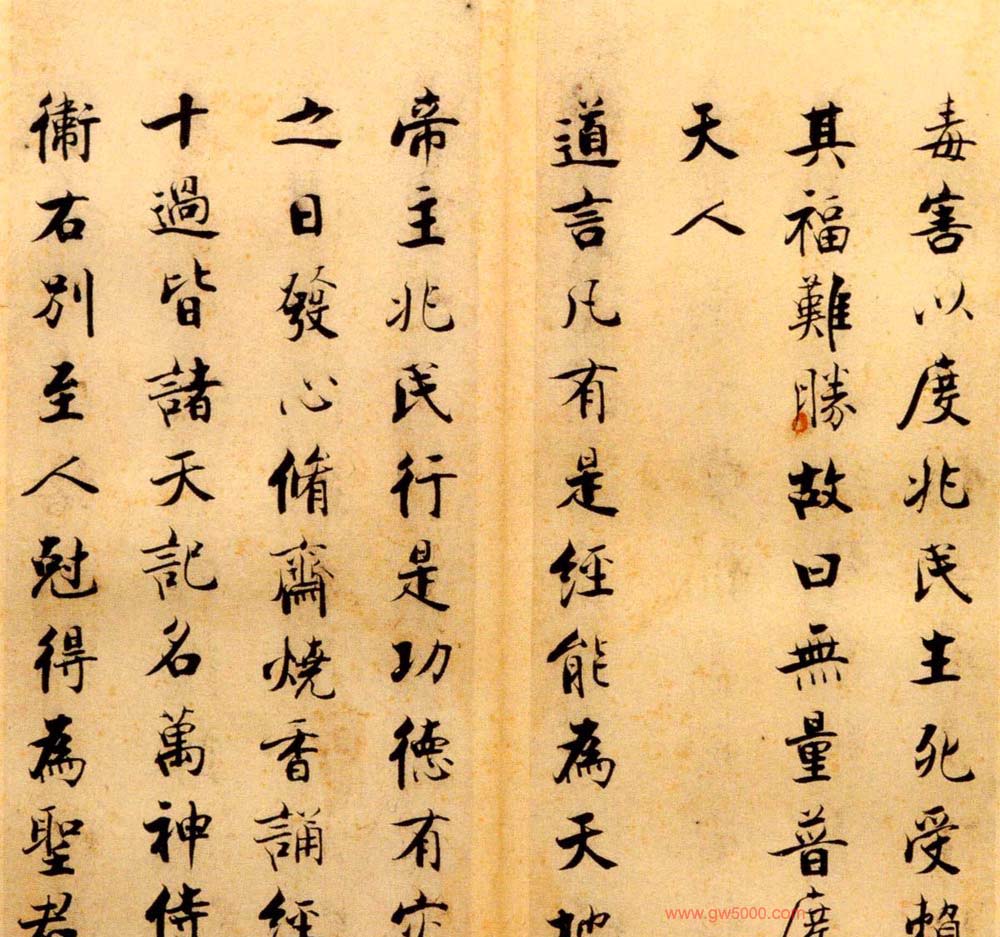 毒害以度兆民生死受賴
其福難勝故曰無量普度
天人
道言凡有是經能為天地
帝主兆民行是功德有灾
之日發心脩齋燒香誦經
十過皆諸天記名萬神侍
衛右別至人尅得為聖君
www.gw5000.com